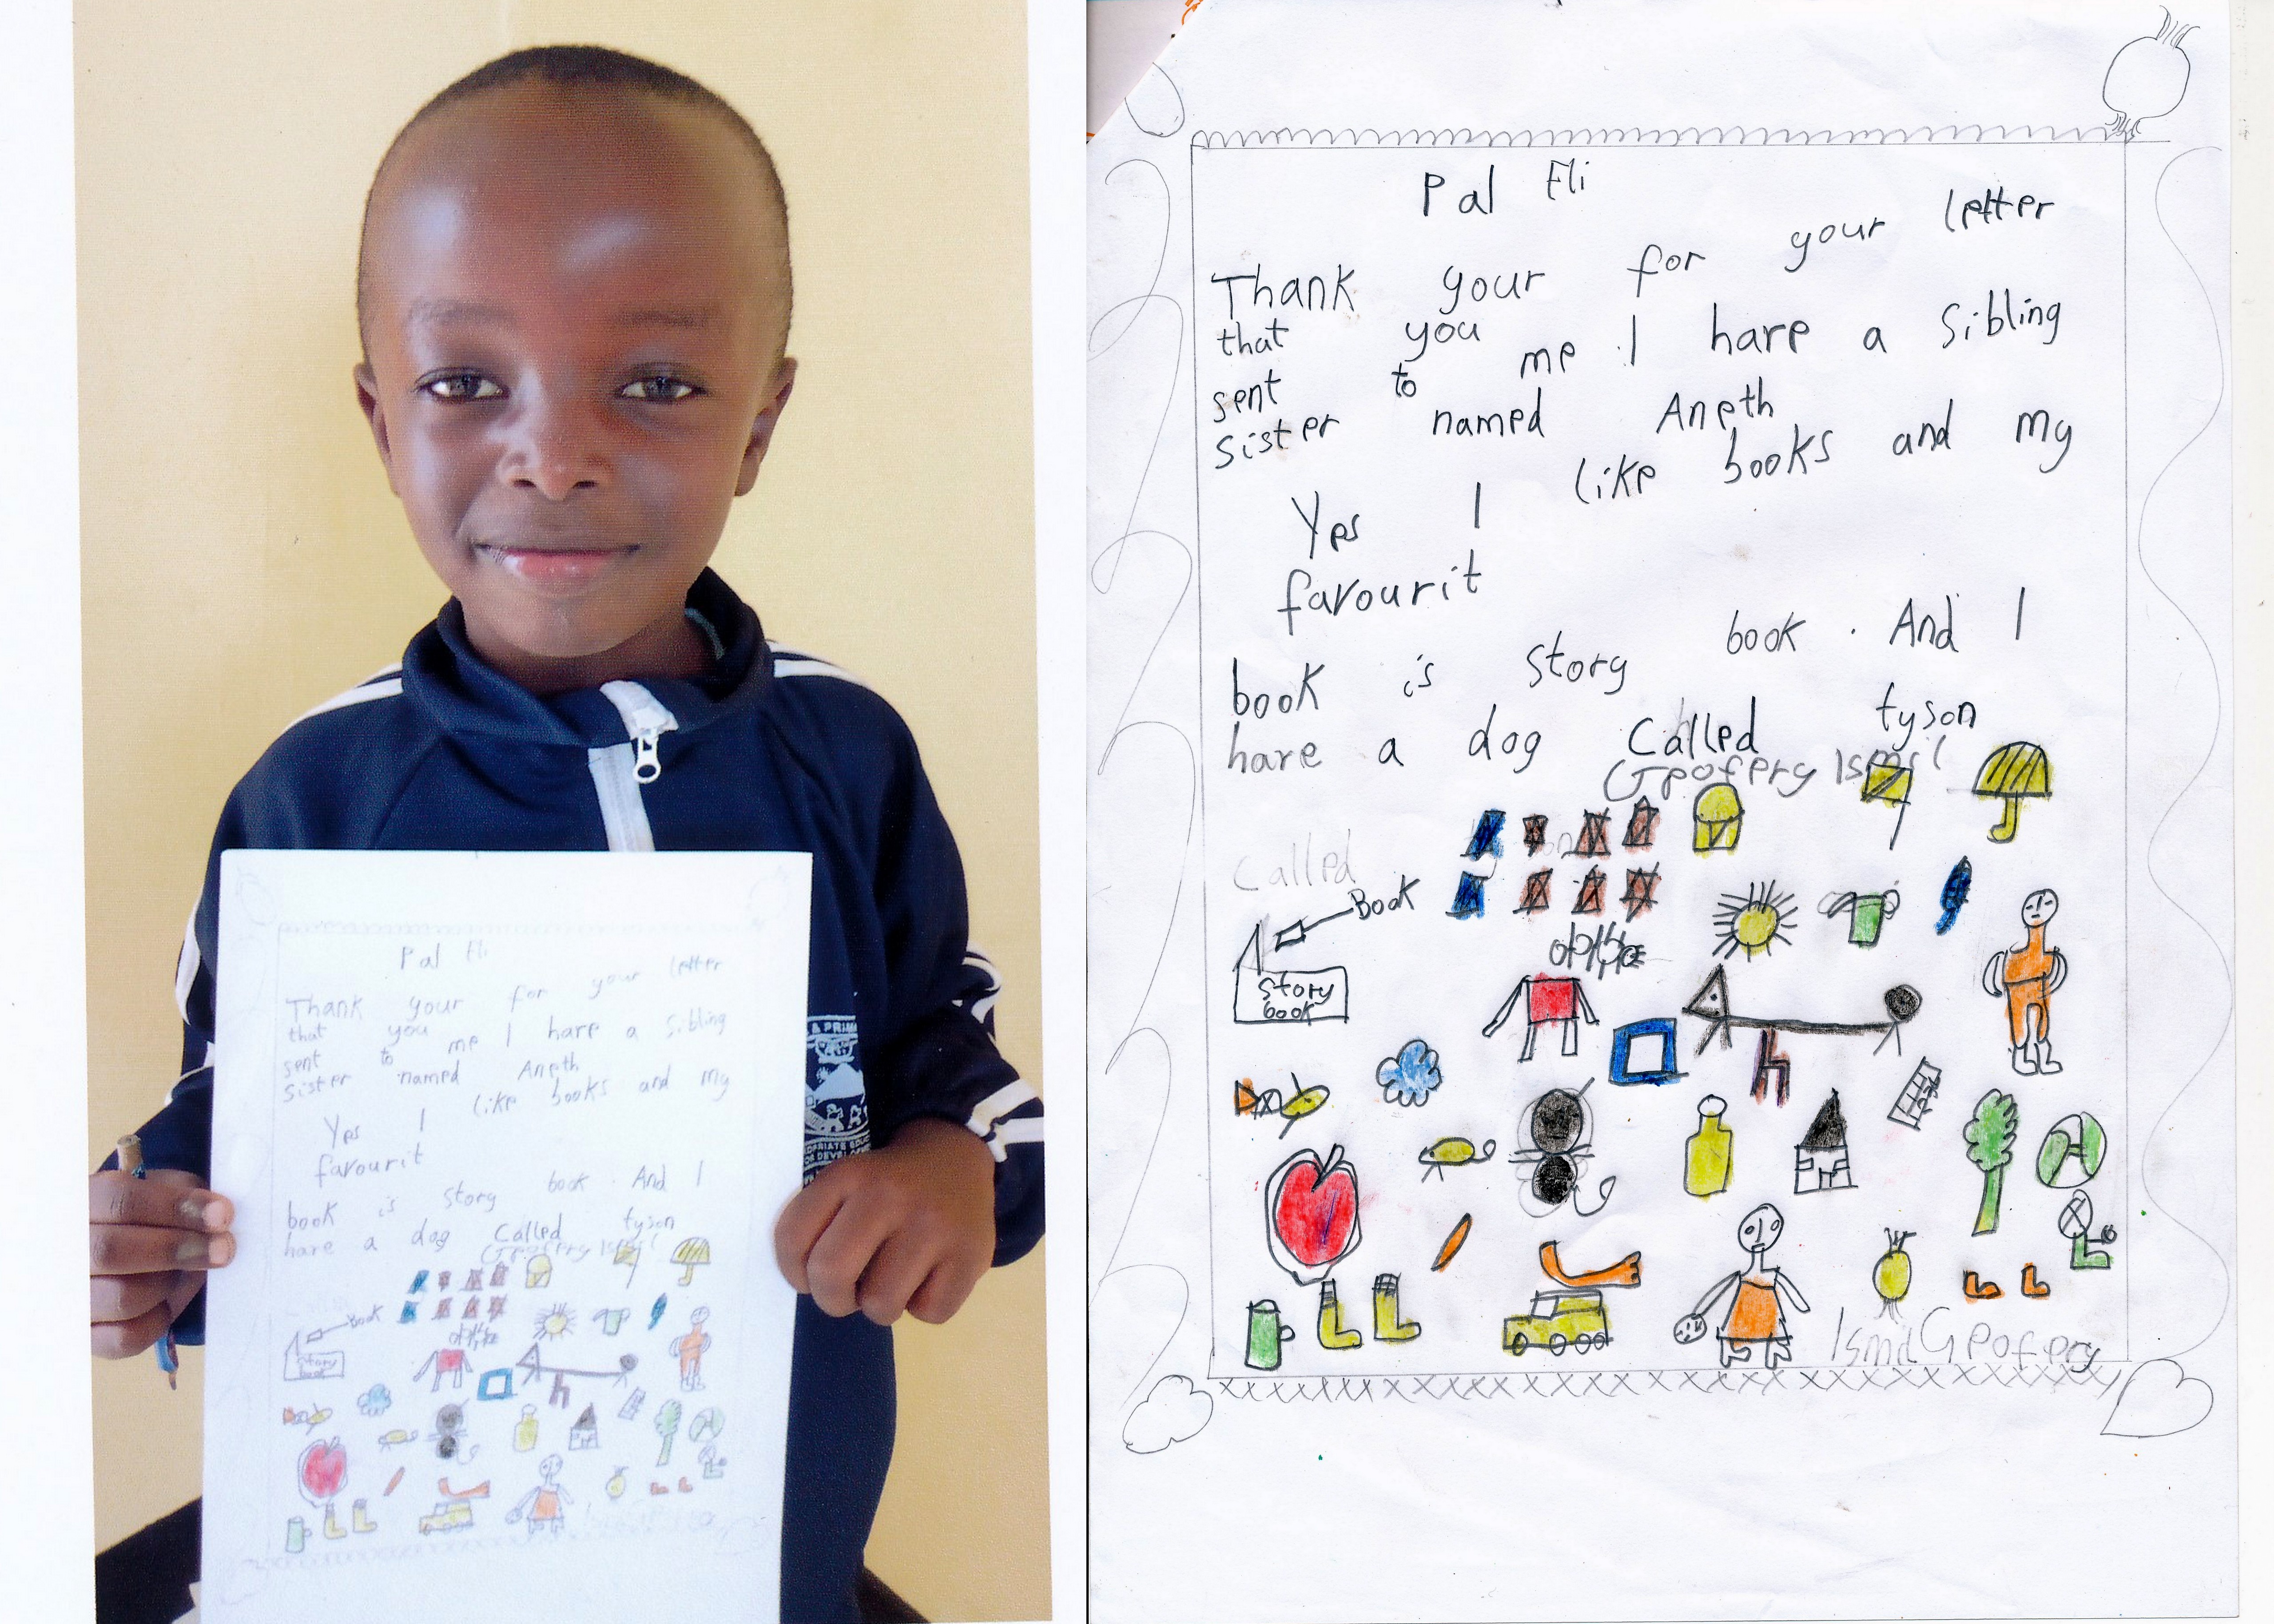 Pal Eli
Thank your for your letter
that you
sent to me I have a sibling
sister named Aneth
Yes I like books and my
favourit
book is story book. And I
have a dog Called tyson
Geofery
Book
Story
book
Pal Eli
Thank your for your letter
that you
sent to me. I have a sibling
sister named Aneth
Yes I like books and my
favourit
book is story book. And I
have a dog Called tyson
Geofery
Called
Book
Story
book
Geofery